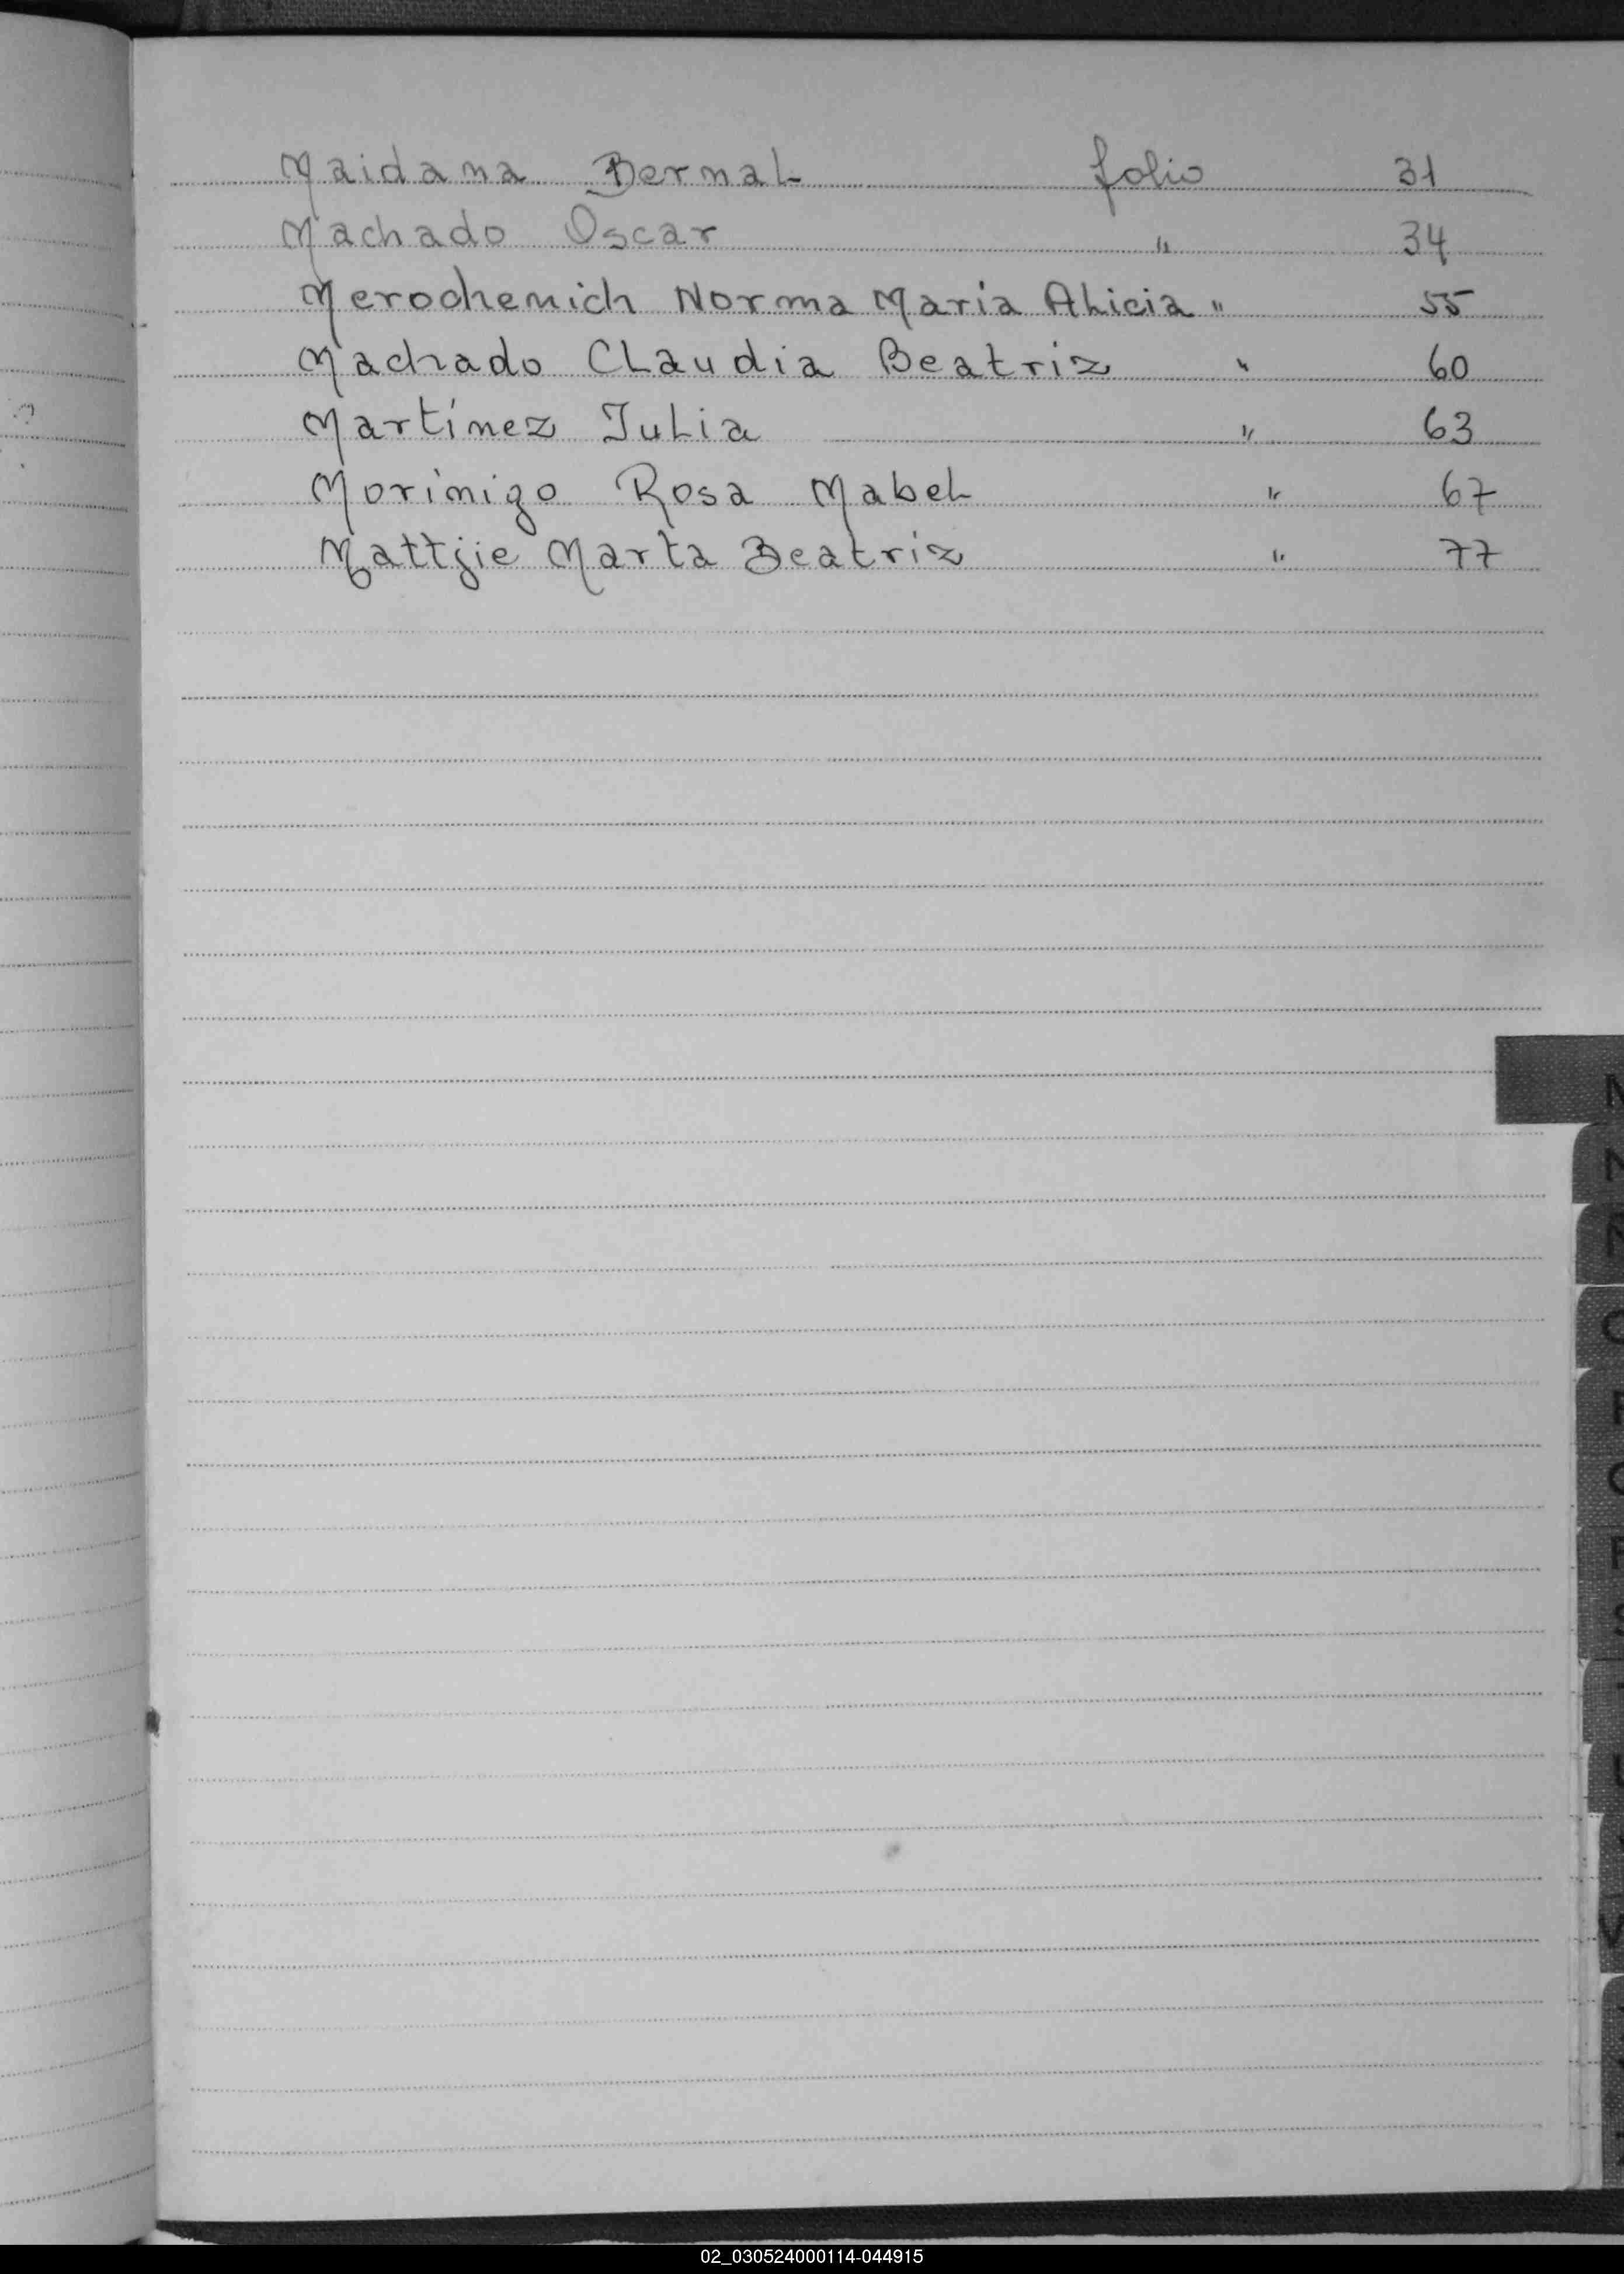 Maidana Bernal folio 31
Machado Oscar " 34
Merochenich Norma Maria Alicia " 55
Machado Claudia Beatriz " 60
Martínez Julia " 63
Morinigo Rosa Mabel " 67
Mattjie Marta Beatriz " 77
N
N
O
S
U
V
02_030524000114-044915